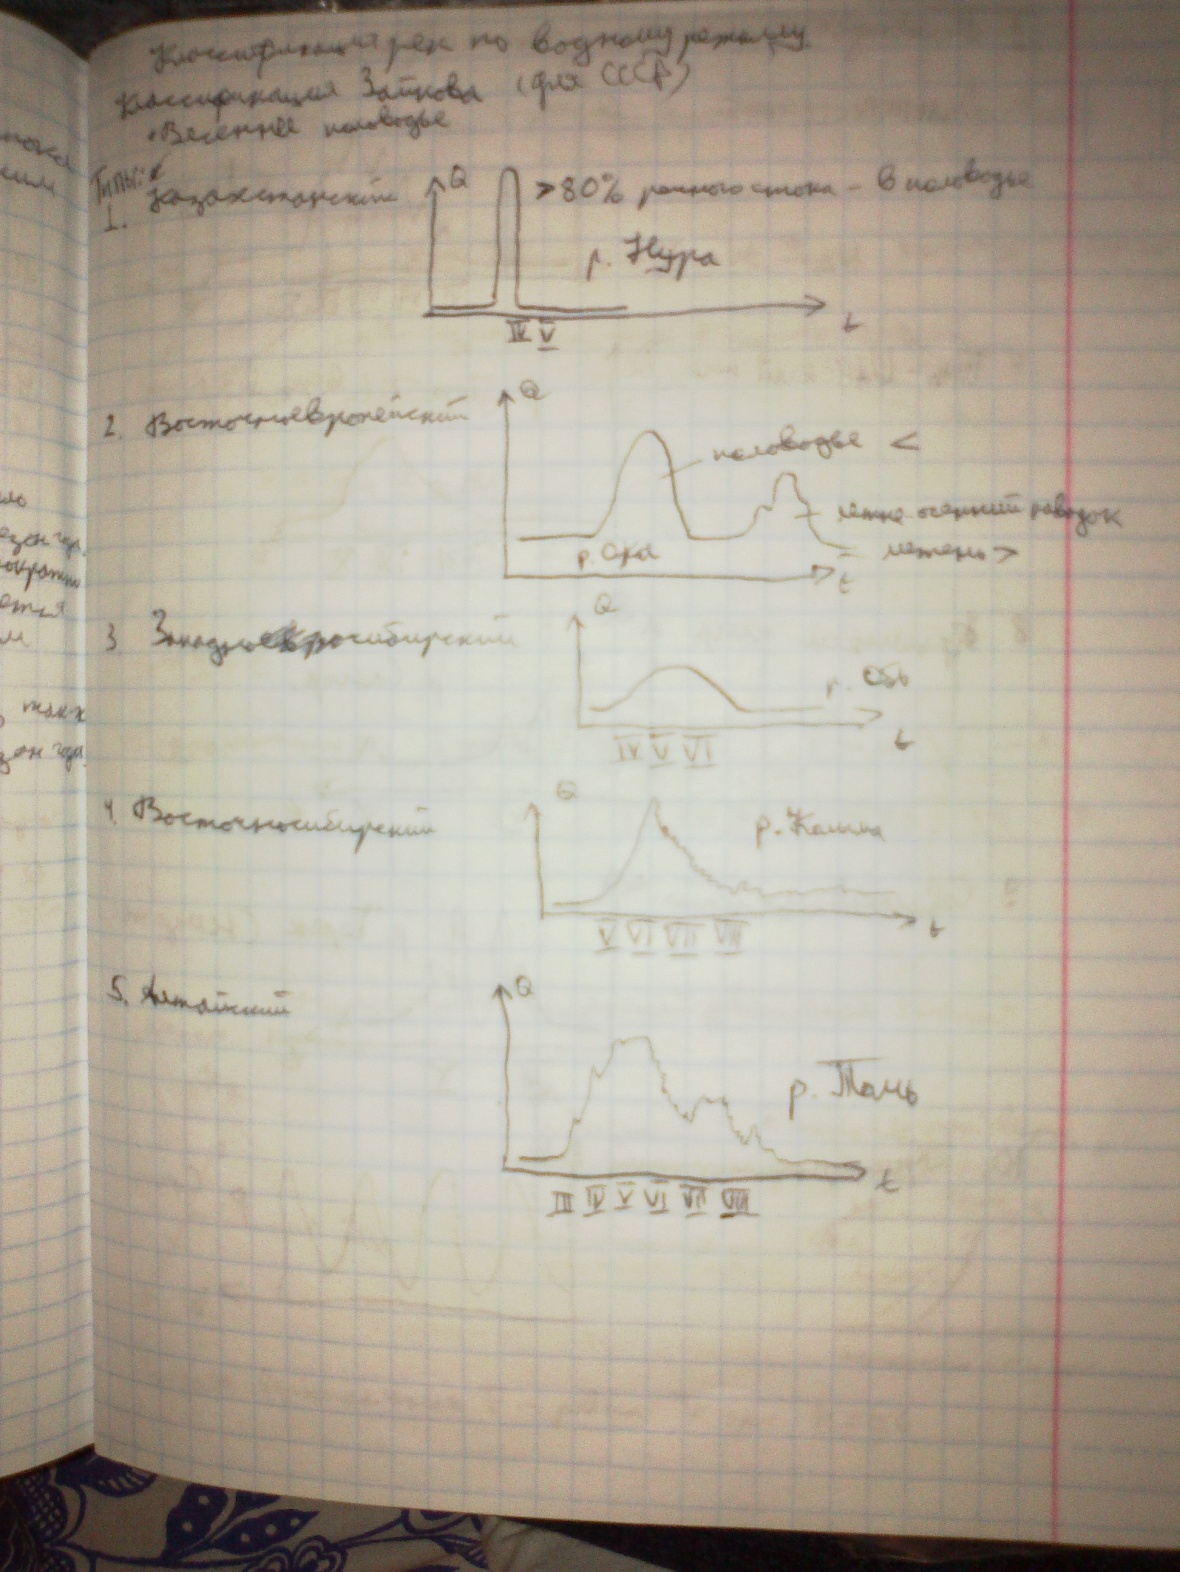 Классификация рек по водному режиму.
Классификация Зайкова (для СССР)
• Весеннее половодье
Типы:
1. Казахстанский
Q
>80% речного стока - в половодье
р. Нура
IV V
t
2. Восточноевропейский
Q
половодье <
летне-осенний паводок
межень >
р. Ока
t
3 Западносибирский
Q
р. Обь
IV V VI
t
4. Восточносибирский
Q
р. Колыма
V VI VII VIII
t
5. Алтайский
Q
р. Томь
III IV V VI VII VIII
t
зон года